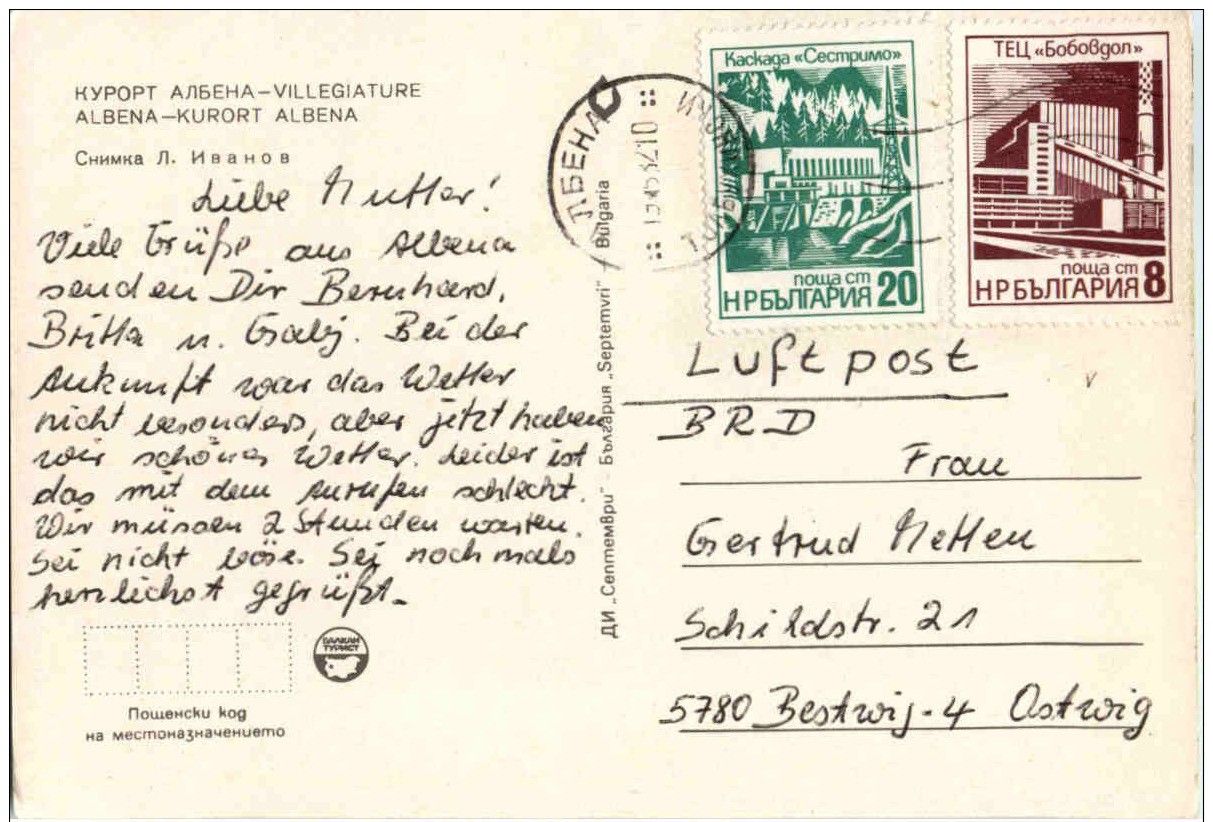 КУРОРТ АЛБЕНА–VILLEGIATURE
ALBENA–KURORT ALBENA
Снимка Л. Иванов
Liebe Mutter!
Viele Grüße aus Albena
senden Dir Bernhard,
Britta u. Gabj. Bei der
Ankunft war das Wetter
nicht besonders, aber jetzt haben
wir schönes Wetter. Leider ist
das mit dem Anrufen schlecht.
Wir müssen 2 Stunden warten.
Sei nicht böse. Sei nochmals
herzlichst gegrüßt.
БАЛКАН
ТУРИСТ
Пощенски код
на местоназначението
ДИ „Септември" - България „Septemvri" - Bulgaria
ЛБЕНА
Каскада «Сестримо»
поща ст
НРБЪЛГАРИЯ 20
ТЕЦ «Бобовдол»
поща ст
НРБЪЛГАРИЯ 8
Luftpost
BRD
Frau
Gertrud Metten
Schildstr. 21
5780 Bestwig-4 Ostwig